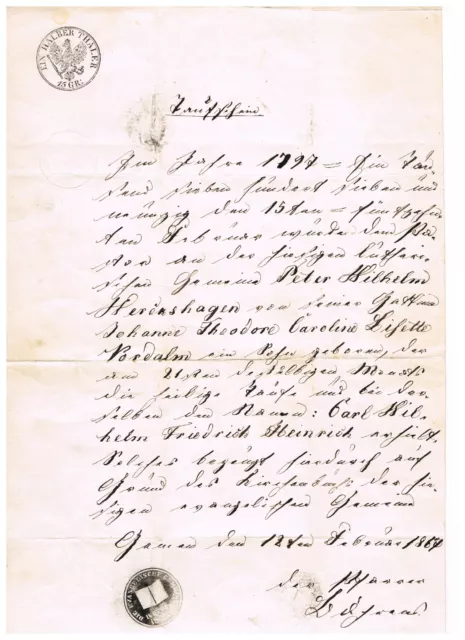 EIN HALBER THALER
15 GR:
Taufschein
Im Jahre 1797 = Ein Tau-
send sieben hundert sieben und
neunzig den 15ten = fünfzehn-
ten Februar wurde dem Pa-
stor an der hiesigen luther-
ischen Gemeine Peter Wilhelm
Herenshagen von seiner Gattinn
Johanne Theodore Caroline Lisette
Nordalm ein Sohn geboren, der
am 21sten desselbigen Monats
die heilige Taufe und bei der-
selben den Namen: Carl Wil-
helm Friedrich Heinrich erhielt.
Solches bezeugt hierdurch auf
Grund des Kirchenbuchs der hie-
sigen evangelischen Gemeine
Gemen den 12ten Februar 1867
der Pfarrer